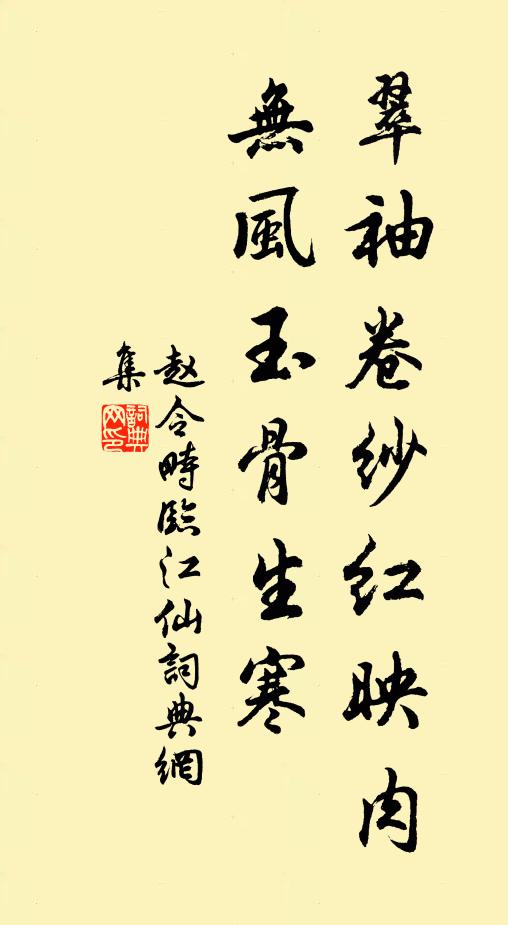 翠袖卷紗紅映肉
無風玉骨生寒
赵令畤臨江仙詞典網
集
詞典網印